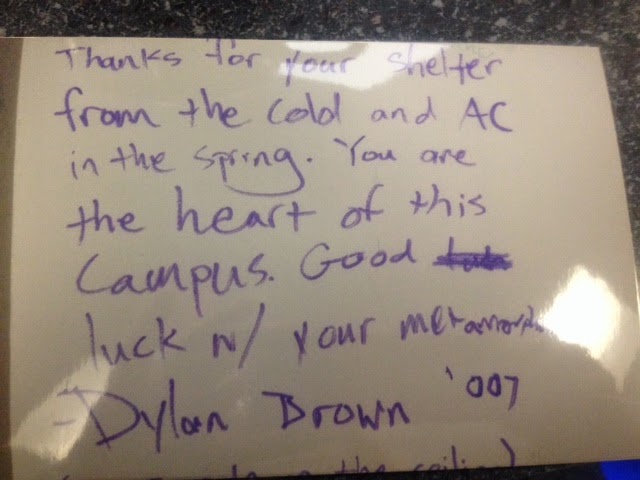 Thanks for your shelter
from the cold and AC
in the spring. You are
the heart of this
Campus. Good
luck w/ your
-Dylan Brown '007
the ceiling)